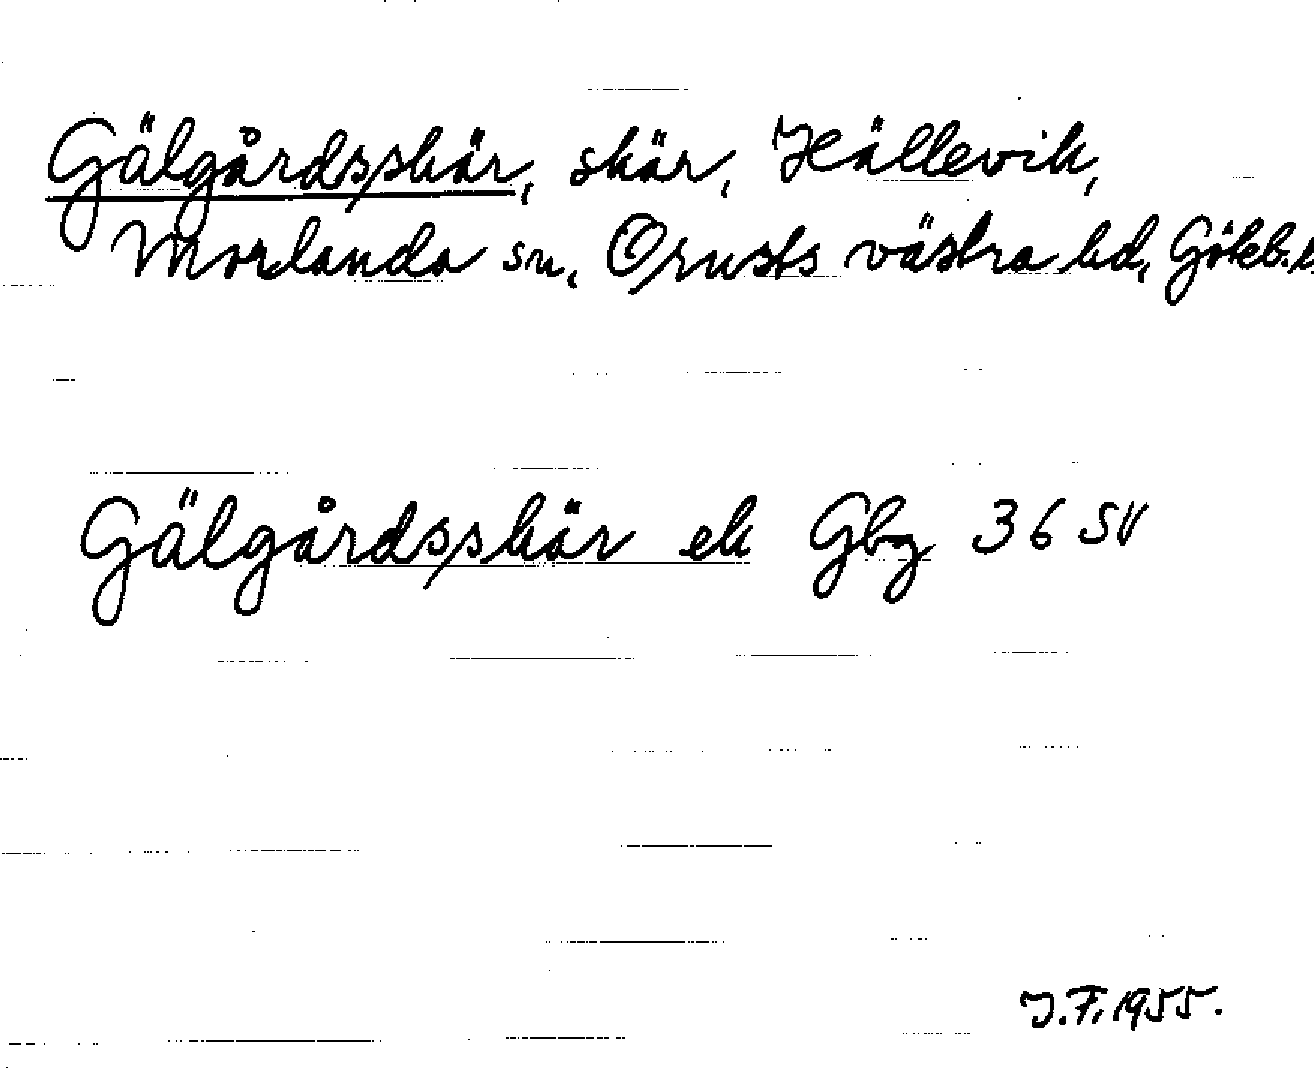 Gälgårdsskär, skär, Hällevik,
Morlanda sn, Orusts västra hd, Göteb.
Gälgårdsskär ek Gbg 36 SV
J.F. 1955.